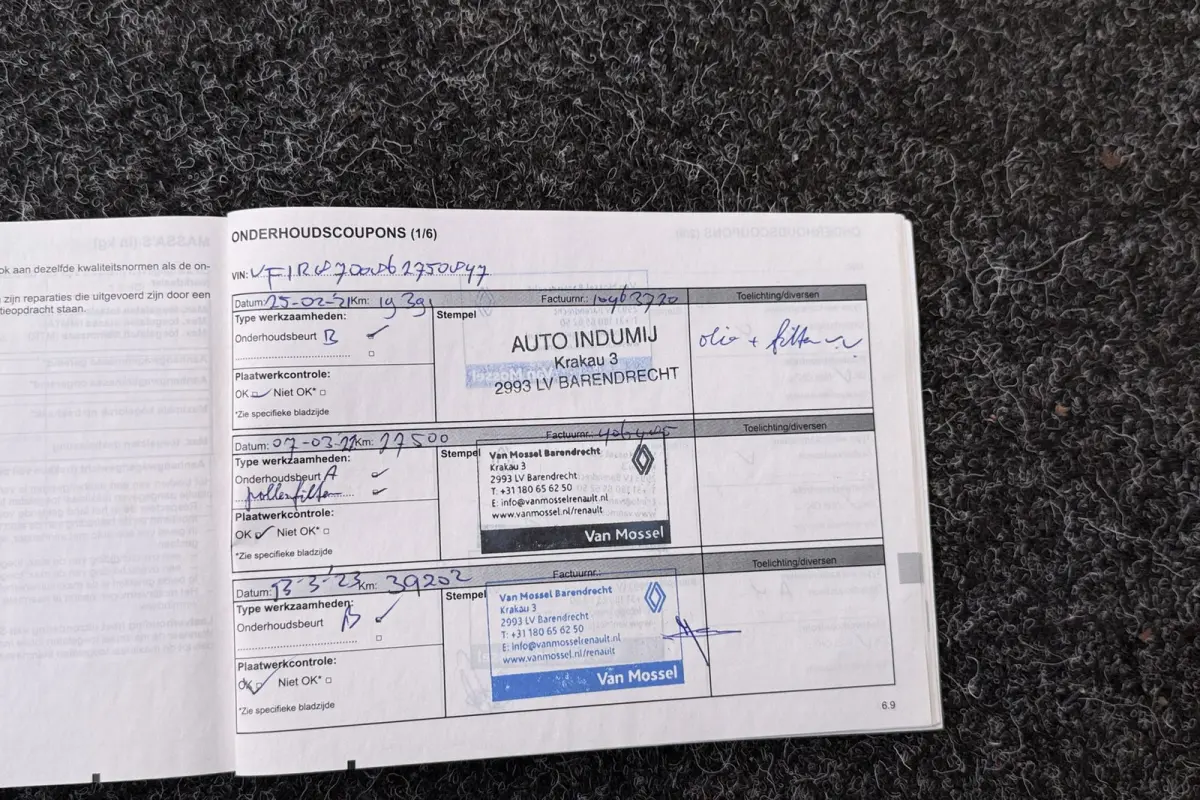 ok aan dezelfde kwaliteitsnormen als de on-
zijn reparaties die uitgevoerd zijn door een
tieopdracht staan.
ONDERHOUDSCOUPONS (1/6)
VIN:
Datum: 25-02-21 Km: Factuurnr.: Toelichting/diversen
Type werkzaamheden:
Onderhoudsbeurt B
Stempel
AUTO INDUMIJ
Krakau 3
2993 LV BARENDRECHT
olie + filter
Plaatwerkcontrole:
OK Niet OK*
*Zie specifieke bladzijde
Datum: 07-03-22 Km: 27500 Factuurnr.: Toelichting/diversen
Type werkzaamheden:
Onderhoudsbeurt A
pollenfilter
Stempel
Van Mossel Barendrecht
Krakau 3
2993 LV Barendrecht
T: +31 180 65 62 50
E: info@vanmosselrenault.nl
www.vanmossel.nl/renault
Van Mossel
Plaatwerkcontrole:
OK Niet OK*
*Zie specifieke bladzijde
Datum: 13-3-'23 Km: 39202 Factuurnr.: Toelichting/diversen
Type werkzaamheden:
Onderhoudsbeurt B
Stempel
Van Mossel Barendrecht
Krakau 3
2993 LV Barendrecht
T: +31 180 65 62 50
E: info@vanmosselrenault.nl
www.vanmossel.nl/renault
Van Mossel
Plaatwerkcontrole:
OK Niet OK*
*Zie specifieke bladzijde
6.9